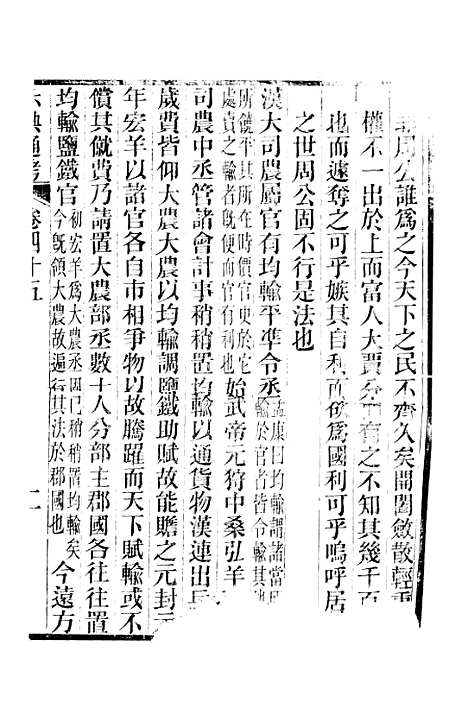 周公誰爲之今天下之民不齊久矣開闔斂散輕重
權不一出於上而富人大賈分而有之不知其幾千百
也而遽奪之可乎嫉其自利而欲爲國利可乎嗚呼居
之世周公固不行是法也
漢大司農屬官有均輸平準令丞孟康曰均輸謂諸當所輸於官者皆令輸其
所饒平其所在時賈官更於它處賣之輸者既便而官有利也始武帝元狩中桑弘羊
司農中丞管諸會計事稍稍置均輸以通貨物漢連出兵
歲費皆仰大農大農以均輸調鹽鐵助賦故能贍之元封元
年宏羊以諸官各自市相爭物以故騰躍而天下賦輸或不
償其僦費乃請置大農部丞數十人分部主郡國各往往置
均輸鹽鐵官初宏羊爲大農丞固已稍稍置均輸矣今既領大農故遍行其法於郡國也今遠方
六典通考 卷四十五 十一